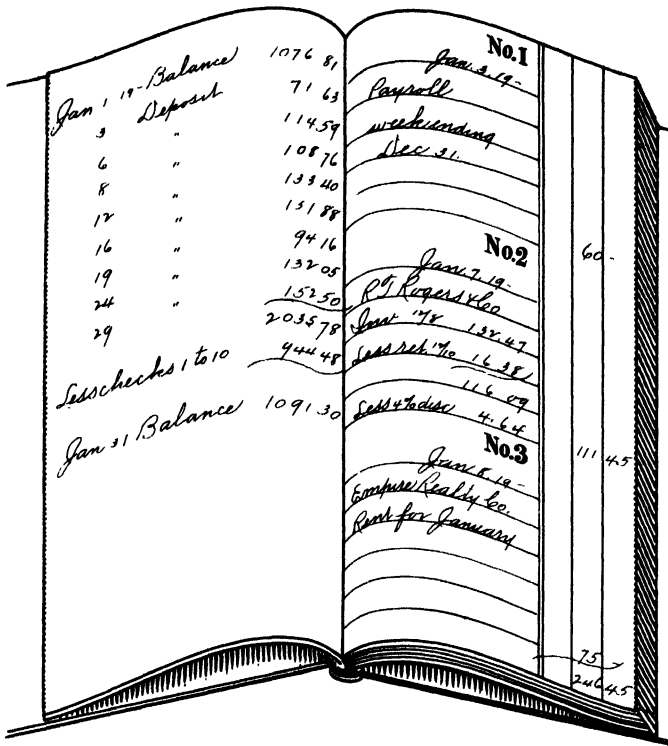 Jan 1 19- Balance 1076 81
3 Deposit 71 63
6 " 114.59
8 " 108 76
12 " 133 40
16 " 151 88
19 " 94 16
24 " 132 05
29 152 50
2035 78
Less checks 1 to 10 944 48
Jan 31 Balance 1091.30
No.1
Jan. 3, 19-
Payroll
week ending
Dec 31.
60 -
No.2
Jan. 7, 19-
R J Rogers & Co
Inv 12/8 132.47
Less ret. 12/10 16 38
116 09
Less 4% disc 4.64
111 45
No.3
Jan 8, 19-
Empire Realty Co.
Rent for January
75 -
246 45